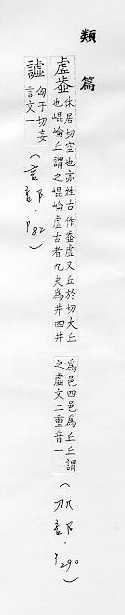 類篇
虛
休居切空也亦姓古作虛又丘於切大丘
也崐崘丘謂之崐崘虛古者九夫為井四井
為邑四邑為丘丘謂
之虛文二重音一
部.P290)
譃
匈于切妄
言文一
(言部.P82)